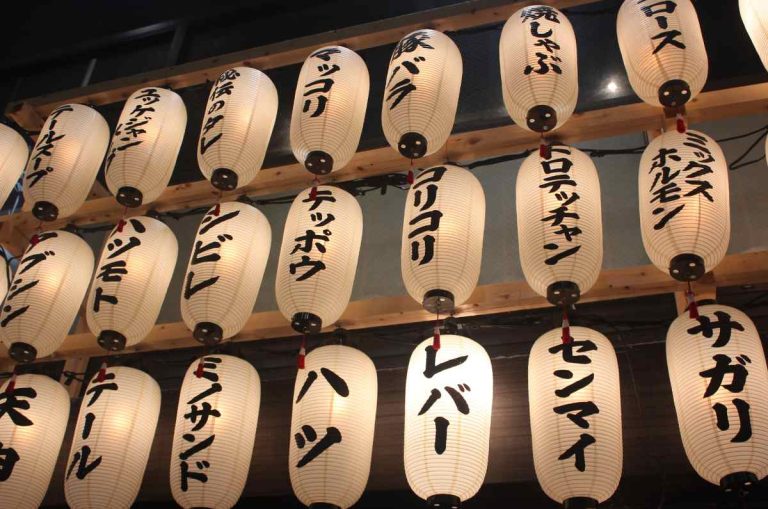 テールスープ
ユッケジャン
秘伝のタレ
マッコリ
豚バラ
焼しゃぶ
ロース
グジン
ハツモト
ンビレ
テッポウ
コリコリ
ロテッチャン
ミックス
ホルモン
テール
ミノサンド
ハツ
レバー
センマイ
サガリ